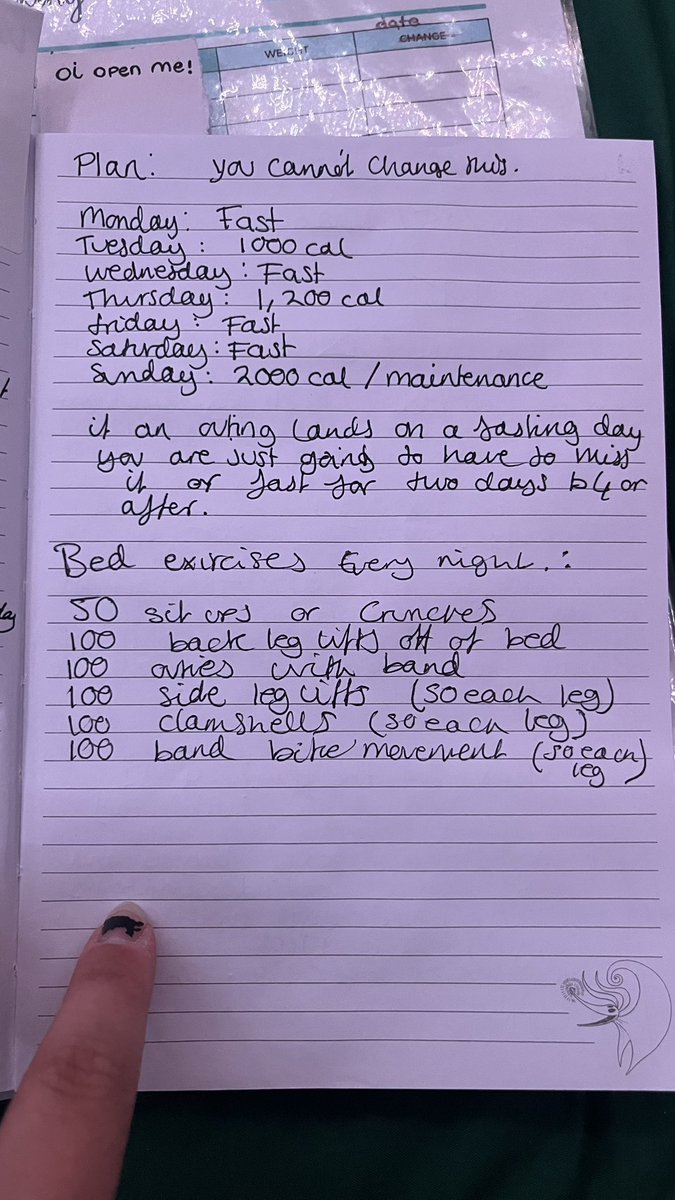 date
WEIGHT CHANGE
oi open me!
Plan: you cannot change this.
Monday: Fast
Tuesday: 1000 cal
Wednesday: Fast
Thursday: 1,200 cal
friday: Fast
Saturday: Fast
Sunday: 2000 cal / maintenance
if an outing lands on a fasting day
you are just going to have to miss
it or fast for two days b4 or
after.
Bed exircises Every night.:
50 sit ups or crunches
100 back leg lifts off of bed
100 outies with band
100 side leg lifts (50 each leg)
100 clamshells (50 each leg)
100 band bike movement (50 each
leg)